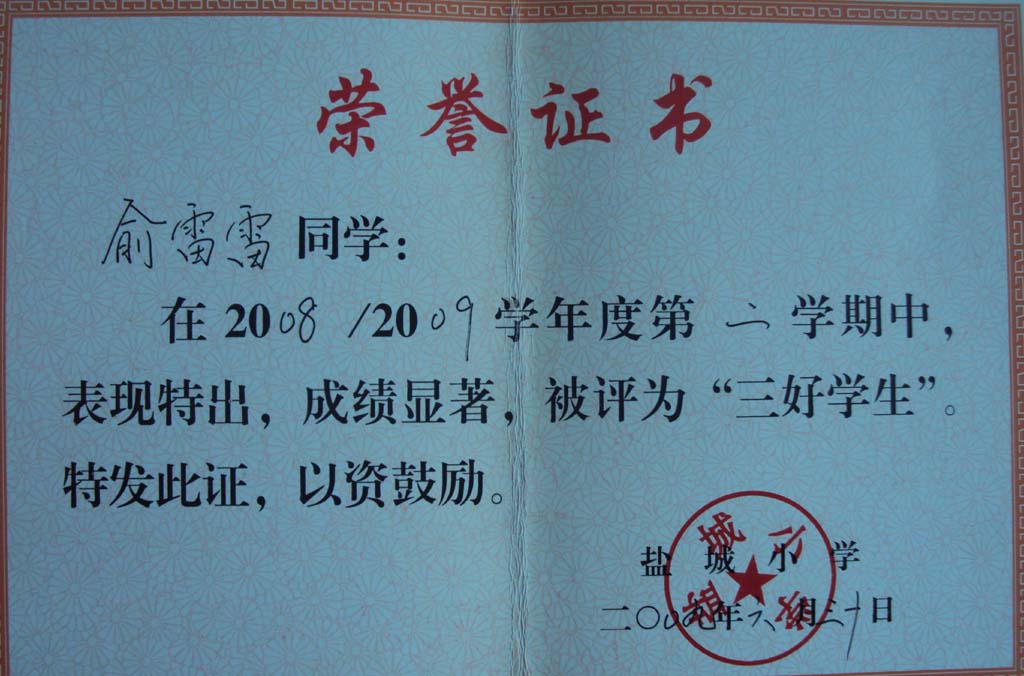 荣誉证书
俞雷雷 同学：
在 2008 /2009 学年度第 二 学期中，
表现特出，成绩显著，被评为“三好学生”。
特发此证，以资鼓励。
盐城小学
二〇〇九年六月三十日
盐城小学